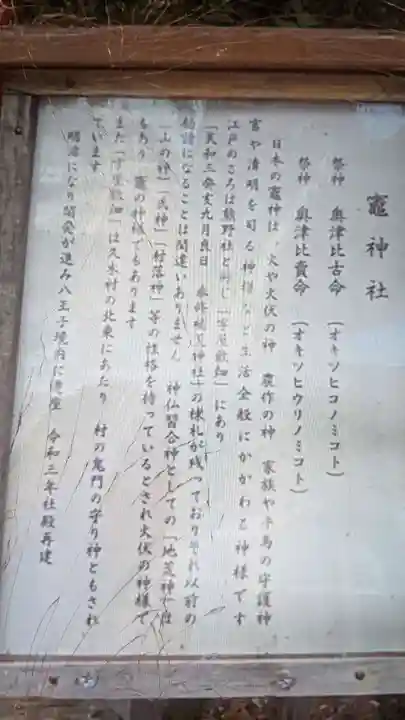 竈神社
祭神　奥津比古命　（オキツヒコノミコト）
祭神　奥津比賣命　（オキツヒウリノミコト）
日本の竈神は、火や火伏の神　農作の神　家族や牛馬の守護神
富や清明を司る神様など生活全般にかかわる神様です
江戸のころは熊野社と同じ「字屋敷畑」にあり
「天和三癸亥九月良日　奉修 神社」の棟札が残っておりそれ以前の
勧請になることは間違いありません　神仏習合神としての「地荒神」は
「山の神」「氏神」「村落神」等の性格を持っているとされ火伏の神様で
もあり　竈の神様でもあります
また「字屋敷畑」は久木村の北東にあたり　村の鬼門の守り神ともされ
ています
明治になり開発が進み八王子境内に遷座　令和三年社殿再建